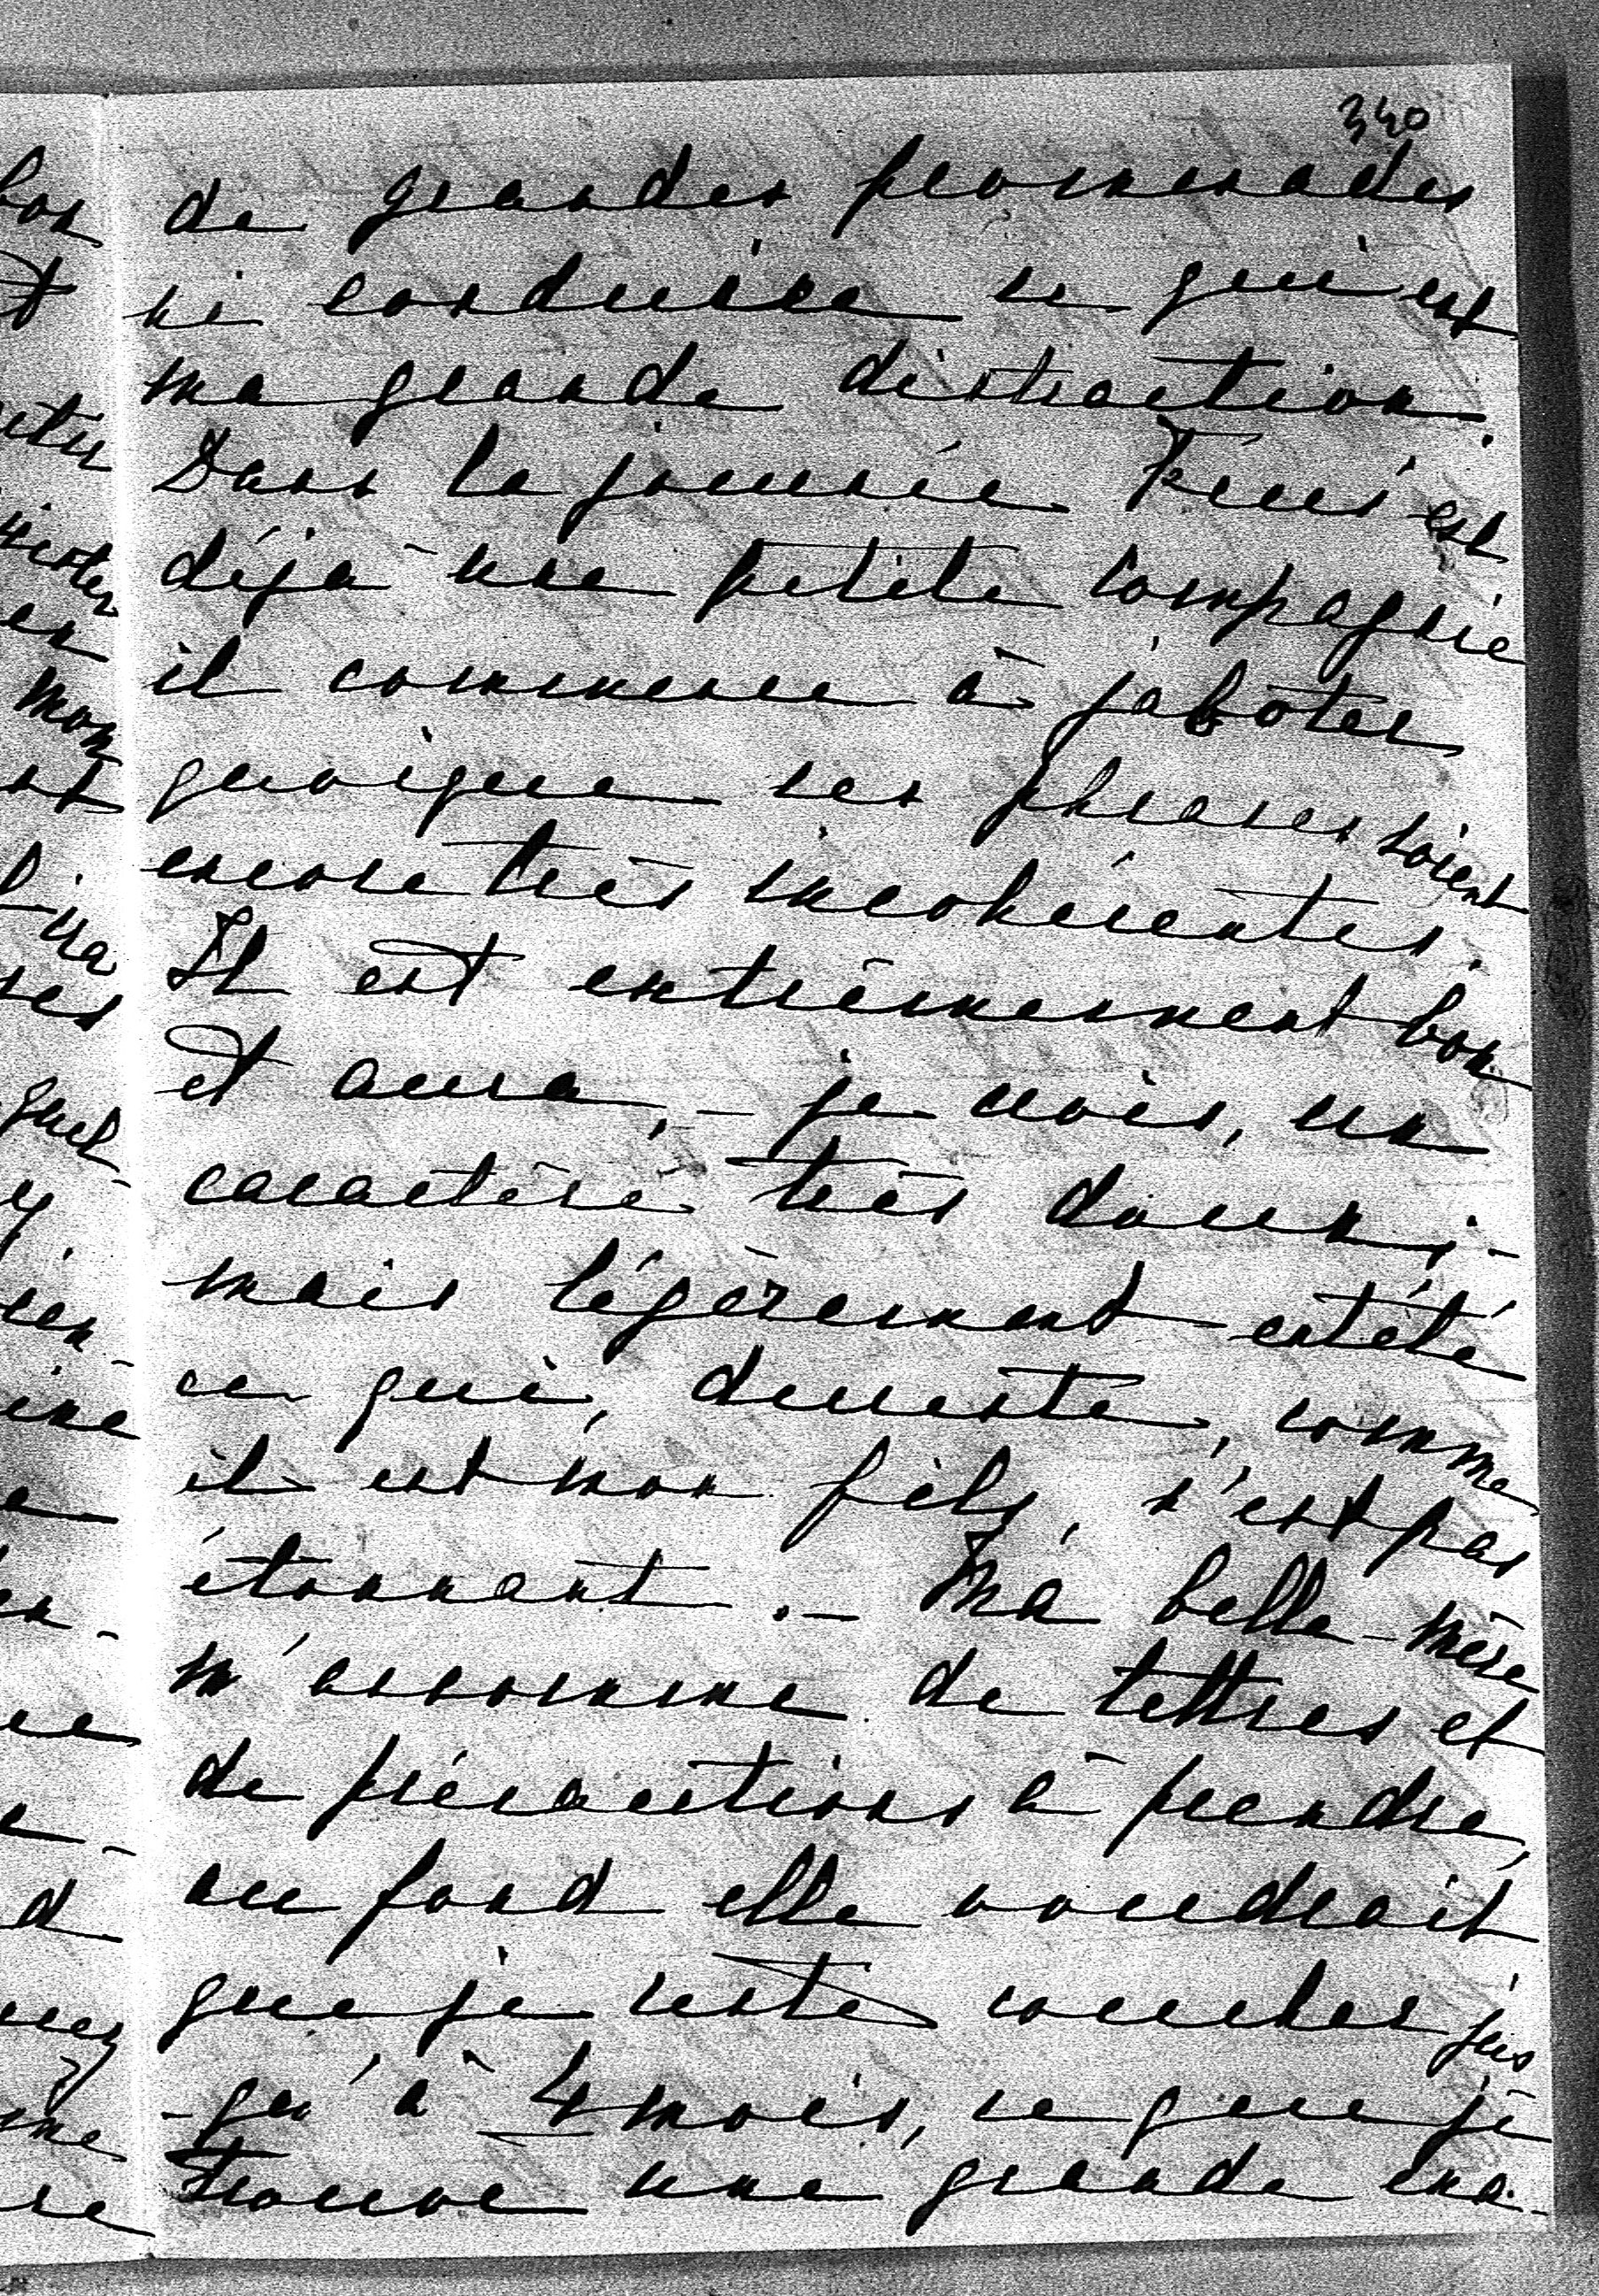 340
de grandes promenades
ni conduire ce qui est
ma grande distraction.
Dans la journée est
déjà une petite compagnie
il commence à jaboter
quoique ses phrases soient
encore très incohérentes.
Il est extrêmement bon
et aura, je crois, un
caractère très doux ;
mais légèrement entêté
ce qui, du reste, comme
il est mon fils, n'est pas
étonnant. — Ma belle-mère
m'assomme de lettres et
de précautions à prendre,
au fond elle voudrait
que je reste couchée jus
-qu'à 4 mois, ce que je
trouve une grande exa-